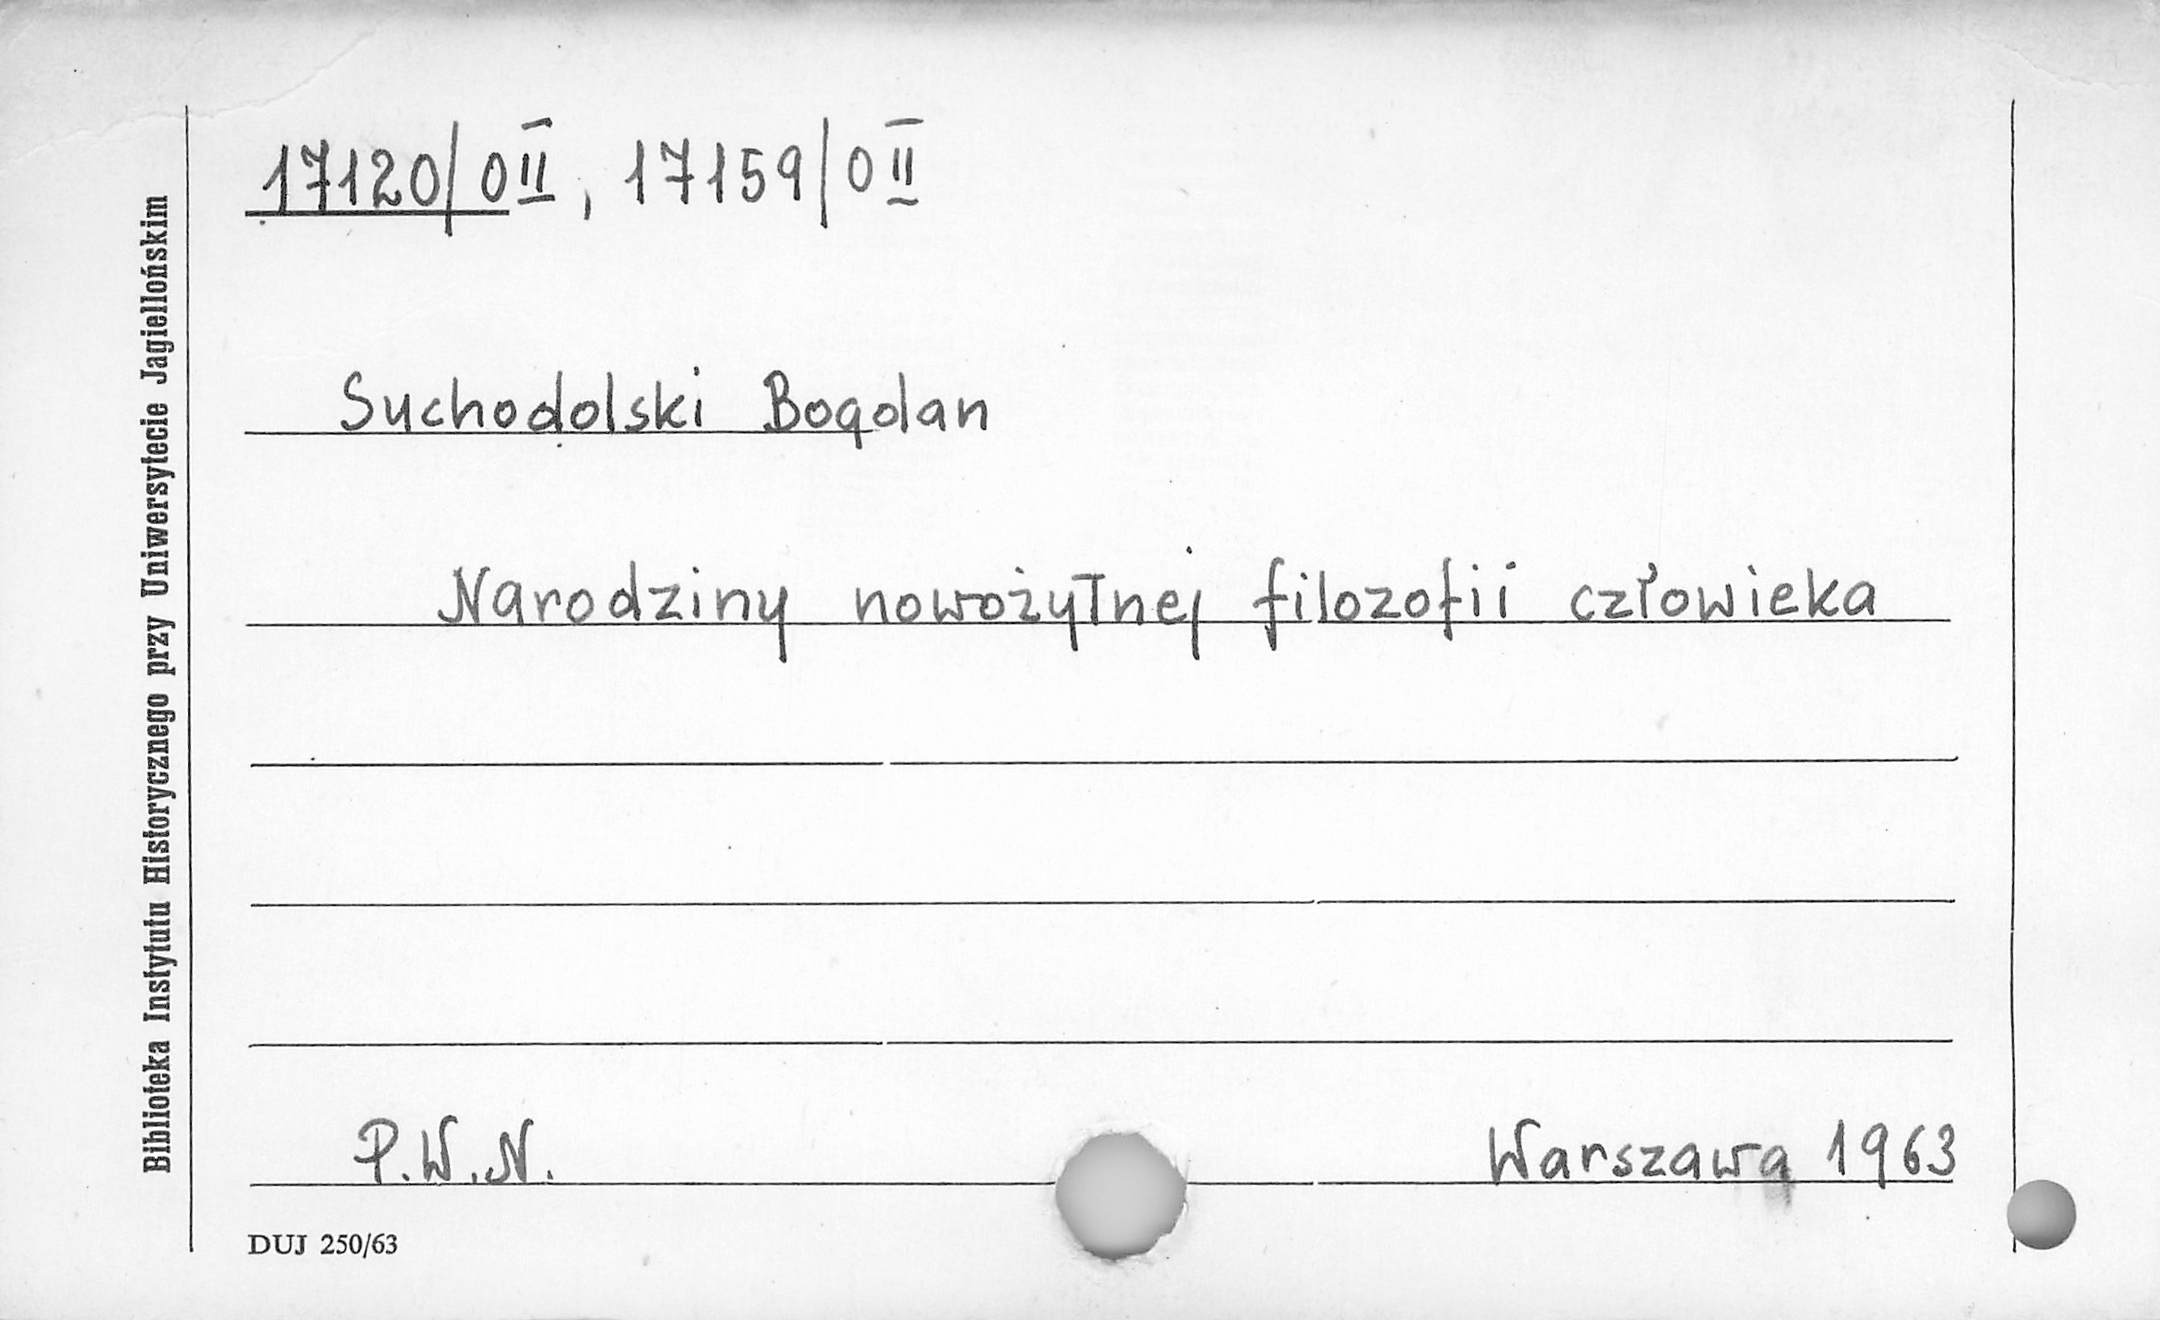 17120/0 II, 17159/0 II
Suchodolski Bogdan
Narodziny nowożytnej filozofii człowieka
P.W.N. Warszawa 1963
DUJ 250/63
Biblioteka Instytutu Historycznego przy Uniwersytecie Jagiellońskim